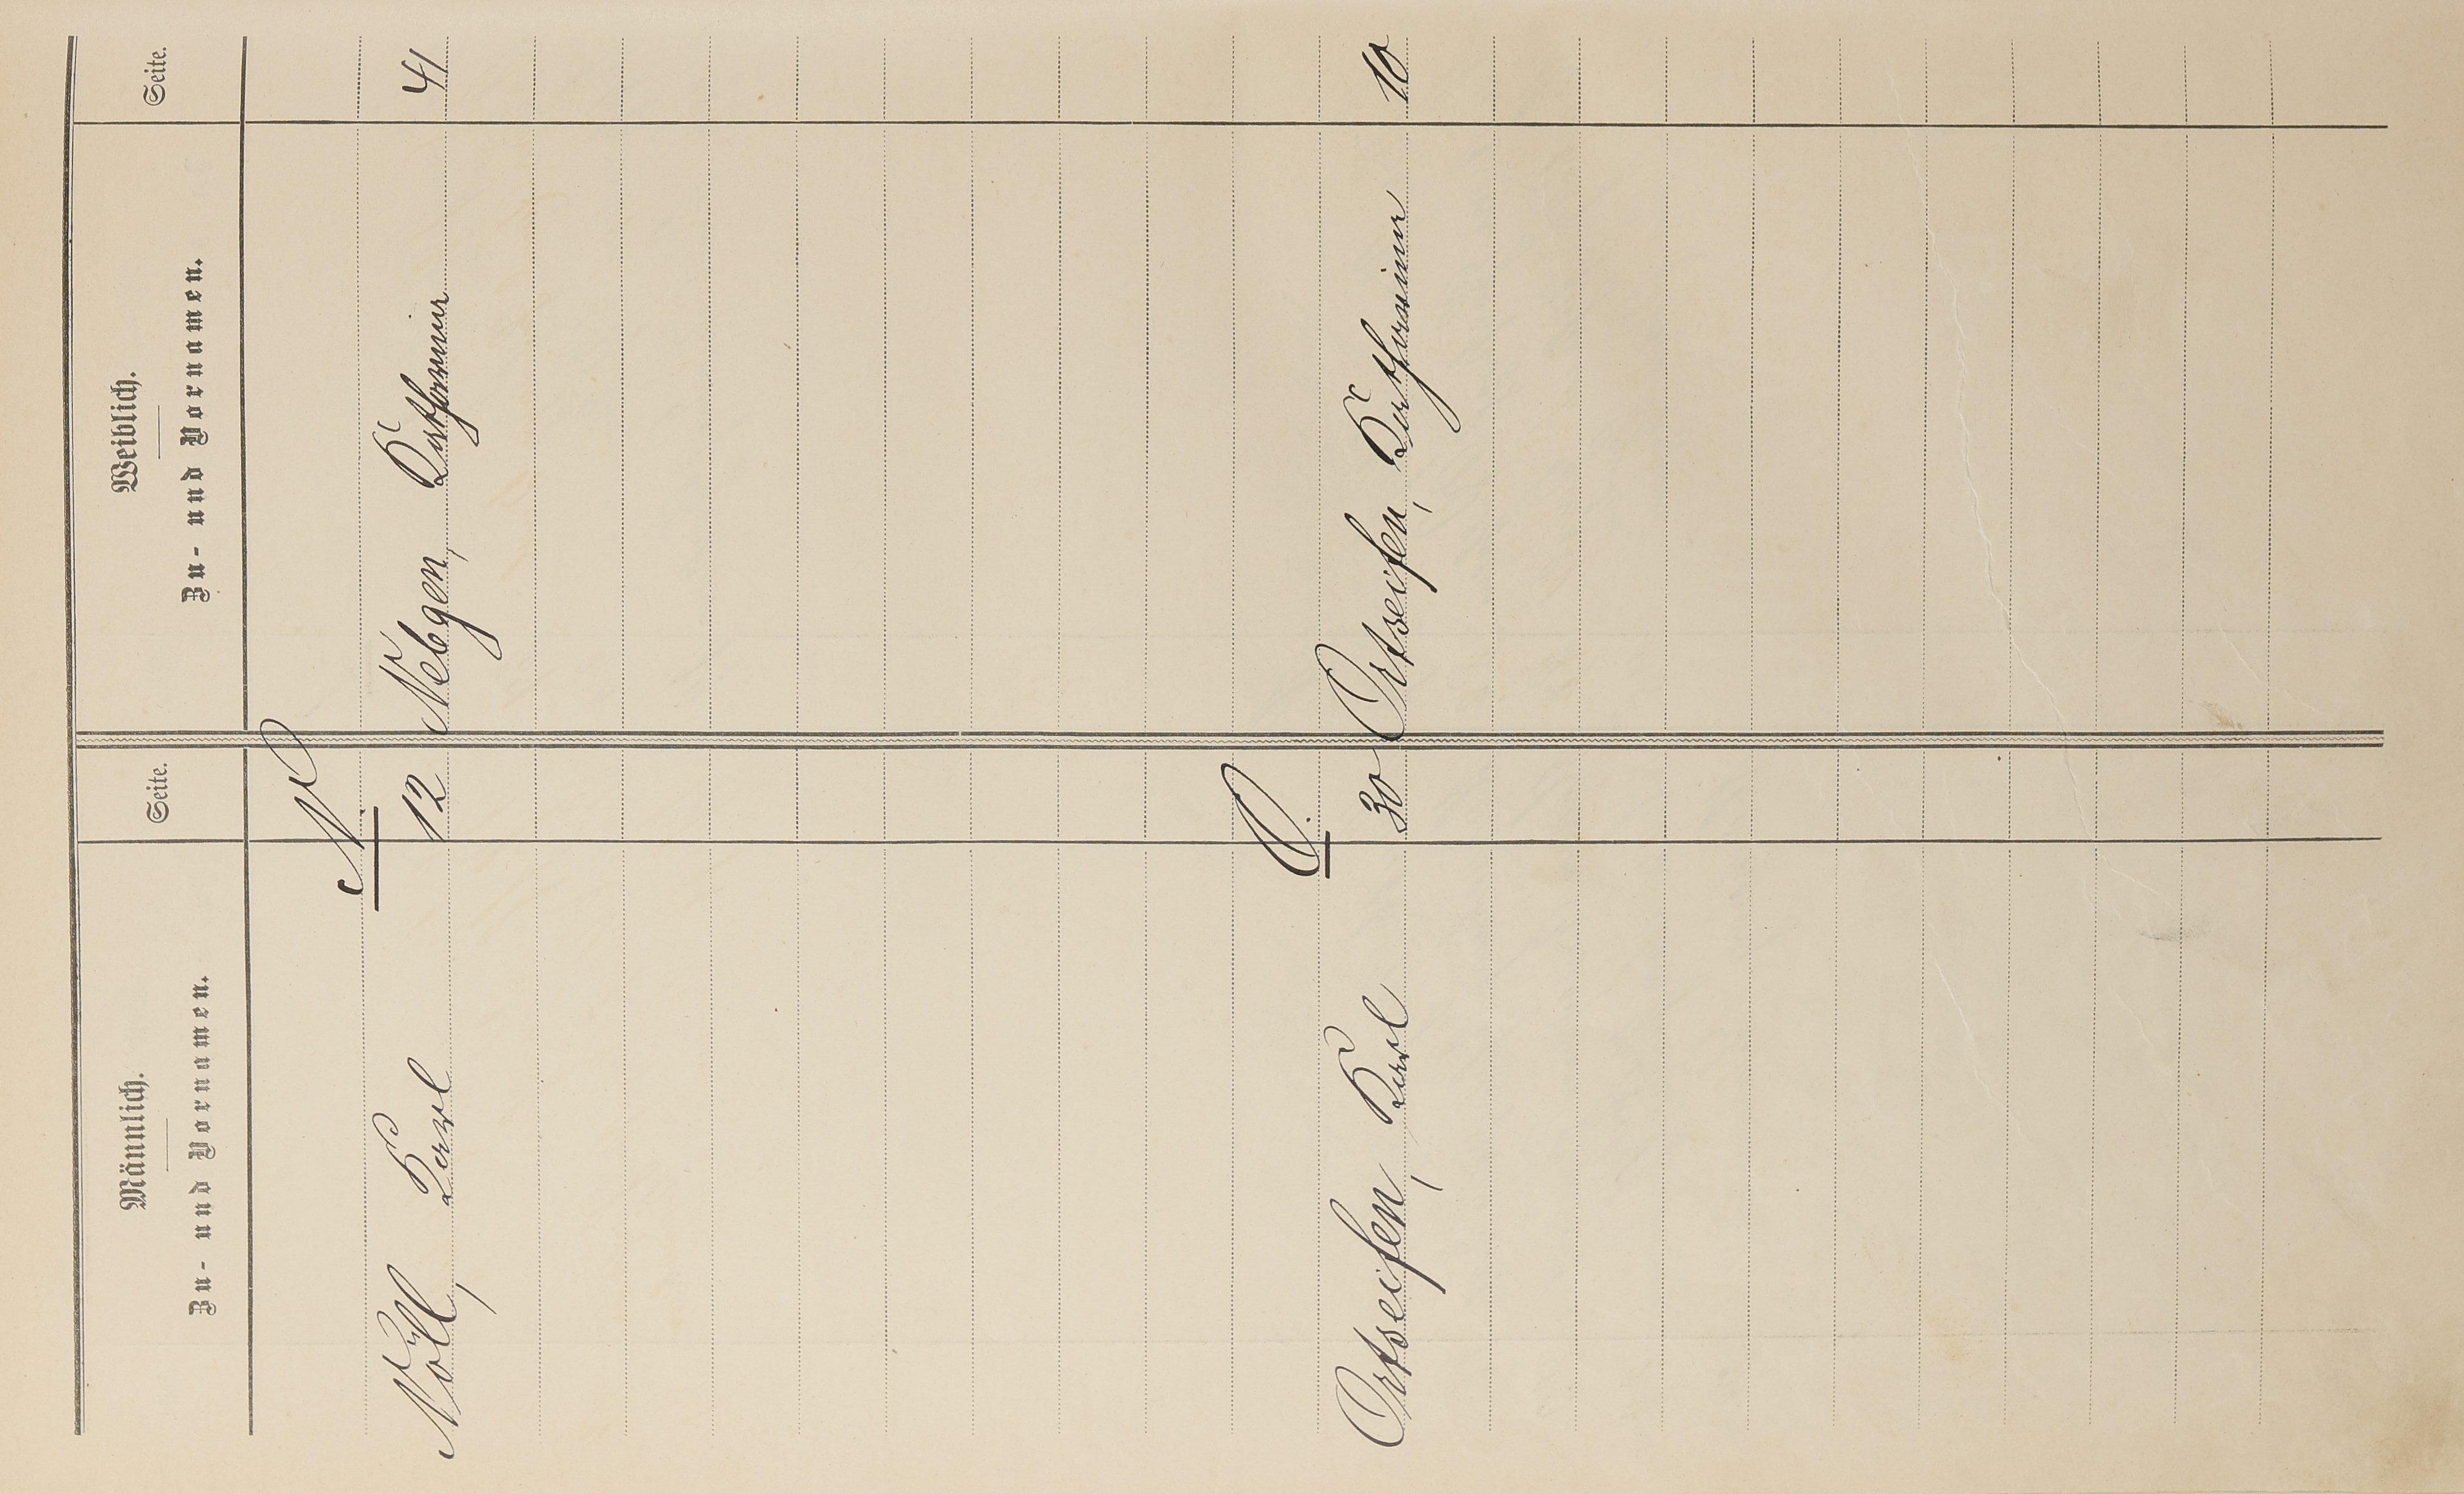 Männlich.
Zu- und Vornamen.
Seite.
Weiblich.
Zu- und Vornamen.
Seite.
N.
Nöll, Karl 12 Nebgen, Katharina 41
O.
Ortseifen, Karl 30 Ortseifen, Katharina 10